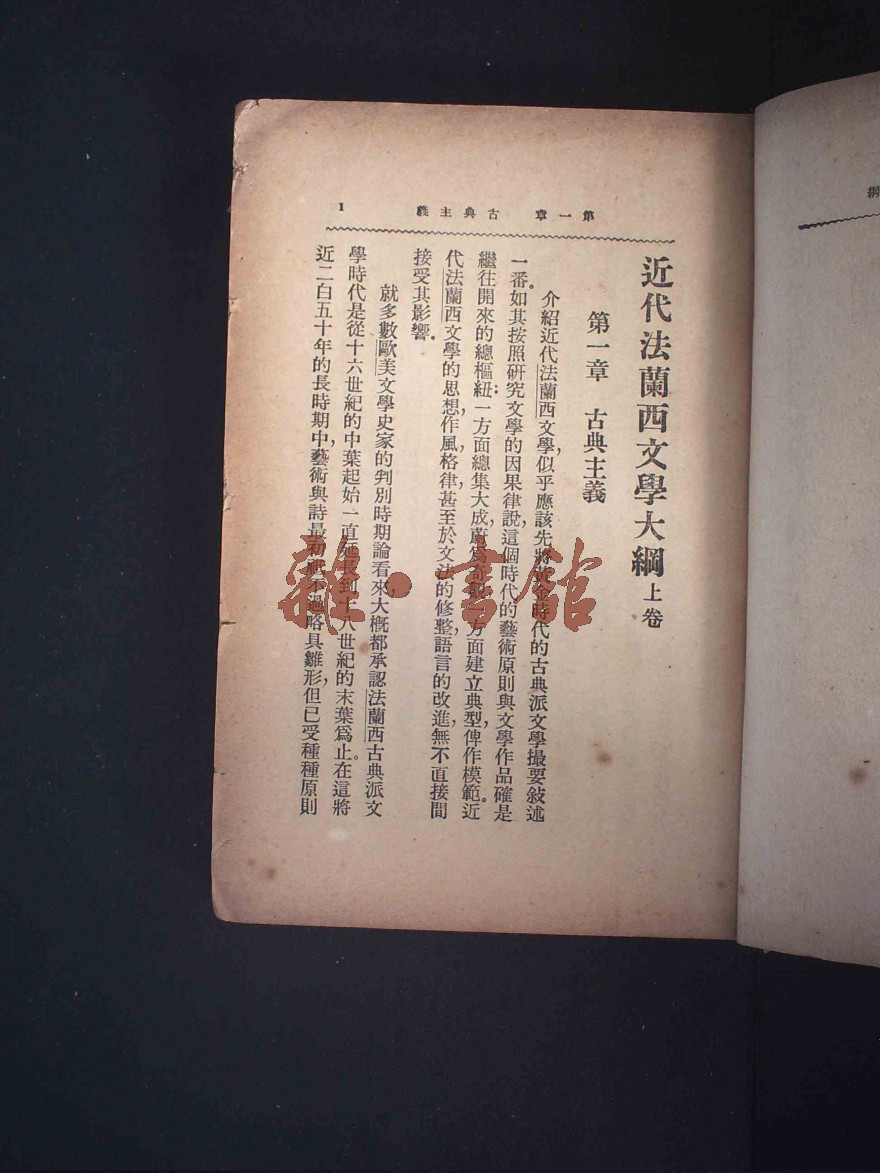 第一章 古典主義 1
近代法蘭西文學大綱 上卷
第一章 古典主義
介紹近代法蘭西文學,似乎應該先將黃金時代的古典派文學撮要敍述
一番。如其按照研究文學的因果律說,這個時代的藝術原則與文學作品確是
繼往開來的總樞紐:一方面總集大成,蔚爲奇觀,一方面建立典型,俾作模範。近
代法蘭西文學的思想,作風,格律,甚至於文法的修整,語言的改進,無不直接間
接受其影響。
就多數歐美文學史家的判別時期論看來,大概都承認法蘭西古典派文
學時代是從十六世紀的中葉起始,一直延長到十八世紀的末葉爲止。在這將
近二百五十年的長時期中,藝術與詩最初祇不過略具雛形,但已受種種原則
綱
雜·書館